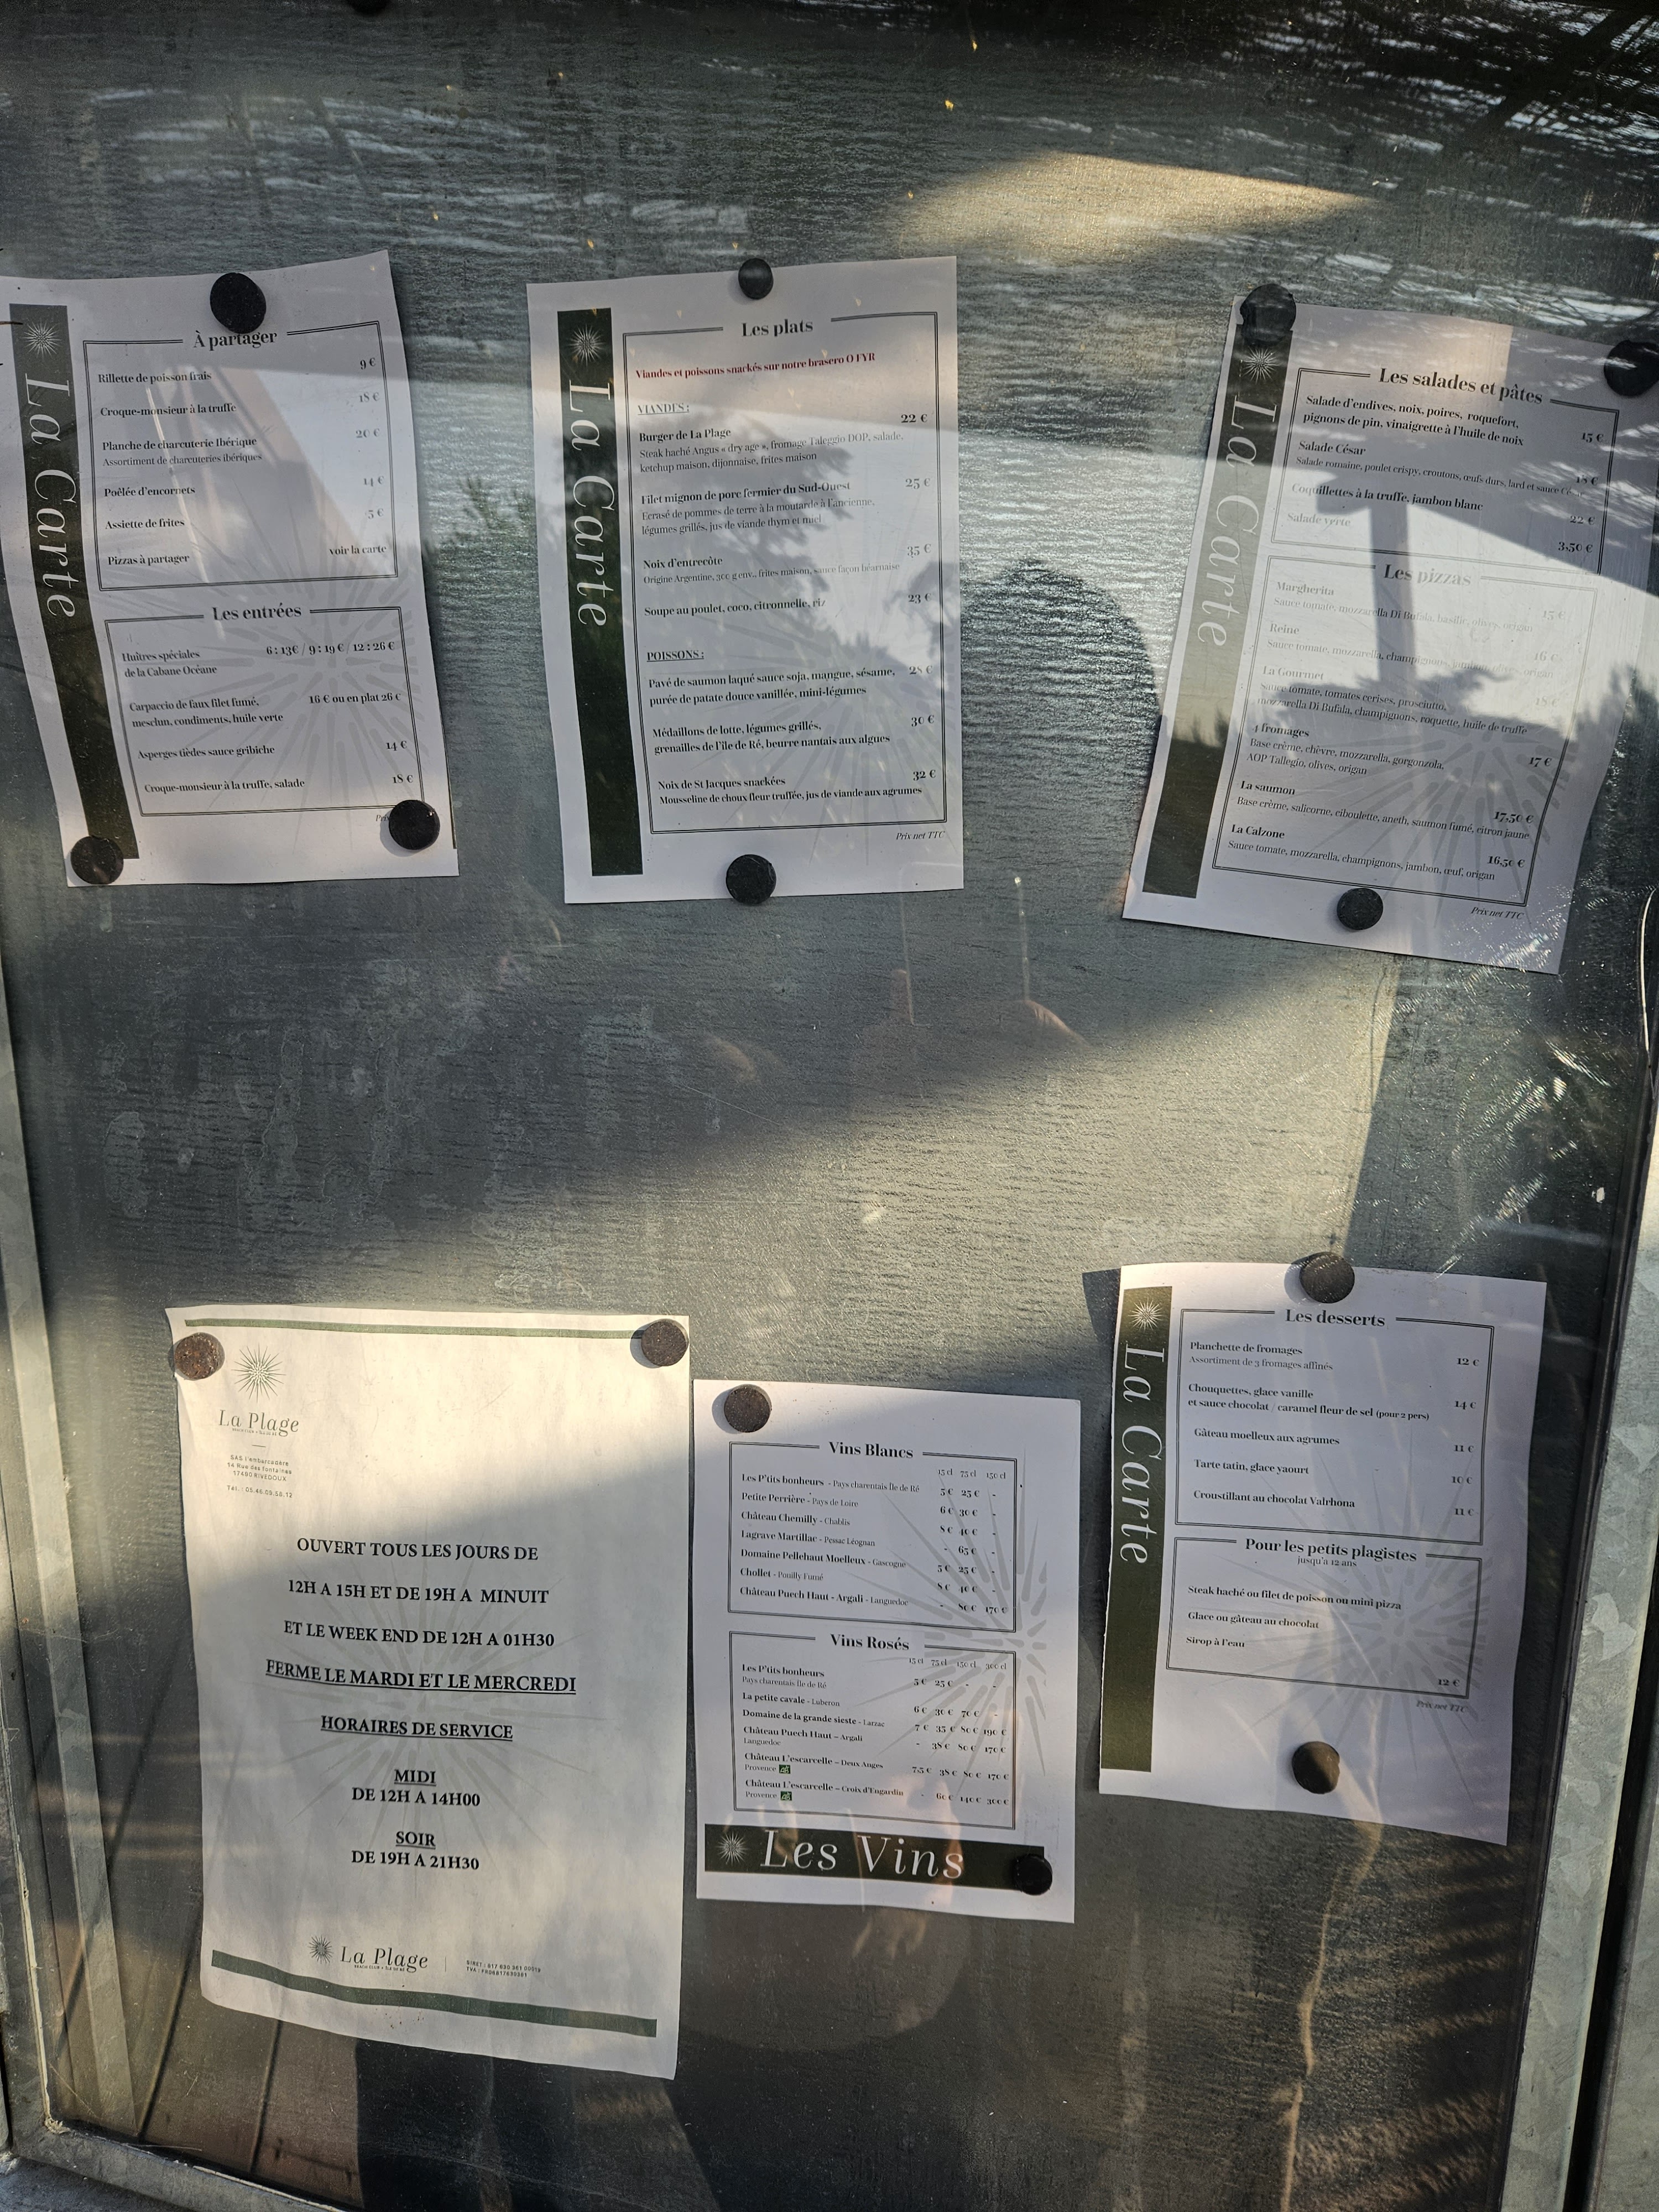 La Carte
À partager
Rillette de poisson frais 9 €
Croque-monsieur à la truffe 18 €
Planche de charcuterie Ibérique 20 €
Assortiment de charcuteries ibériques
Poêlée d'encornets 14 €
Assiette de frites 5 €
Pizzas à partager voir la carte
Les entrées
Huîtres spéciales 6 : 13€ / 9 : 19 € / 12 : 26 €
de la Cabane Océane
Carpaccio de faux filet fumé, 16 € ou en plat 26 €
mesclun, condiments, huile verte
Asperges tièdes sauce gribiche 14 €
Croque-monsieur à la truffe, salade 18 €
La Carte
Les plats
Viandes et poissons snackés sur notre brasero OFYR
VIANDES :
Burger de La Plage 22 €
Steak haché Angus « dry age », fromage Taleggio DOP, salade,
ketchup maison, dijonnaise, frites maison
Filet mignon de porc fermier du Sud-Ouest 25 €
Ecrasé de pommes de terre à la moutarde à l'ancienne,
légumes grillés, jus de viande thym et miel
Noix d'entrecôte 35 €
Origine Argentine, 300 g env., frites maison, sauce façon béarnaise
Soupe au poulet, coco, citronnelle, riz 23 €
POISSONS :
Pavé de saumon laqué sauce soja, mangue, sésame, 28 €
purée de patate douce vanillée, mini-légumes
Médaillons de lotte, légumes grillés, 30 €
grenailles de l'île de Ré, beurre nantais aux algues
Noix de St Jacques snackées 32 €
Mousseline de choux fleur truffée, jus de viande aux agrumes
Prix net TTC
La Carte
Les salades et pâtes
Salade d'endives, noix, poires, roquefort,
pignons de pin, vinaigrette à l'huile de noix 15 €
Salade César
Salade romaine, poulet crispy, croutons, œufs durs, lard et sauce 18 €
Coquillettes à la truffe, jambon blanc 22 €
Salade verte 3,50 €
Les pizzas
Margherita 15 €
Sauce tomate, mozzarella Di Bufala, basilic, olives, origan
Reine 16 €
Sauce tomate, mozzarella, champignons, jambon, olives, origan
La Gourmet 18 €
Sauce tomate, tomates cerises, prosciutto,
mozzarella Di Bufala, champignons, roquette, huile de truffe
4 fromages 17 €
Base crème, chèvre, mozzarella, gorgonzola,
AOP Tallegio, olives, origan
La saumon 17,50 €
Base crème, salicorne, ciboulette, aneth, saumon fumé, citron jaune
La Calzone 16,50 €
Sauce tomate, mozzarella, champignons, jambon, œuf, origan
Prix net TTC
La Plage
SAS l'embarcadère
14 Rue des fontaines
17490 RIVEDOUX
Tél. : 05.46.09.56.12
OUVERT TOUS LES JOURS DE
12H A 15H ET DE 19H A MINUIT
ET LE WEEK END DE 12H A 01H30
FERME LE MARDI ET LE MERCREDI
HORAIRES DE SERVICE
MIDI
DE 12H A 14H00
SOIR
DE 19H A 21H30
La Plage
Vins Blancs
15 cl 75 cl 150 cl
Les P'tits bonheurs - Pays charentais Île de Ré 5 € 25 € -
Petite Perrière - Pays de Loire 6 € 30 € -
Château Chemilly - Chablis 8 € 40 € -
Lagrave Martillac - Pessac Léognan - 65 € -
Domaine Pellehaut Moelleux - Gascogne 5 € 25 € -
Chollet - Pouilly Fumé 8 € 40 € -
Château Puech Haut - Argali - Languedoc - 80 € 170 €
Vins Rosés
15 cl 75 cl 150 cl 300 cl
Les P'tits bonheurs 5 € 25 € - -
Pays charentais Île de Ré
La petite cavale - Luberon 6 € 30 € 70 € -
Domaine de la grande sieste - Larzac 7 € 35 € 80 € 190 €
Château Puech Haut – Argali - 38 € 80 € 170 €
Languedoc
Château L'escarcelle – Deux Anges 7,5 € 38 € 80 € 170 €
Provence AB
Château L'escarcelle – Croix d'Engardin - 60 € 140 € 300 €
Provence AB
Les Vins
La Carte
Les desserts
Planchette de fromages 12 €
Assortiment de 3 fromages affinés
Chouquettes, glace vanille
et sauce chocolat / caramel fleur de sel (pour 2 pers) 14 €
Gâteau moelleux aux agrumes 11 €
Tarte tatin, glace yaourt 10 €
Croustillant au chocolat Valrhona 11 €
Pour les petits plagistes
jusqu'à 12 ans
Steak haché ou filet de poisson ou mini pizza
Glace ou gâteau au chocolat
Sirop à l'eau
12 €
Prix net TTC